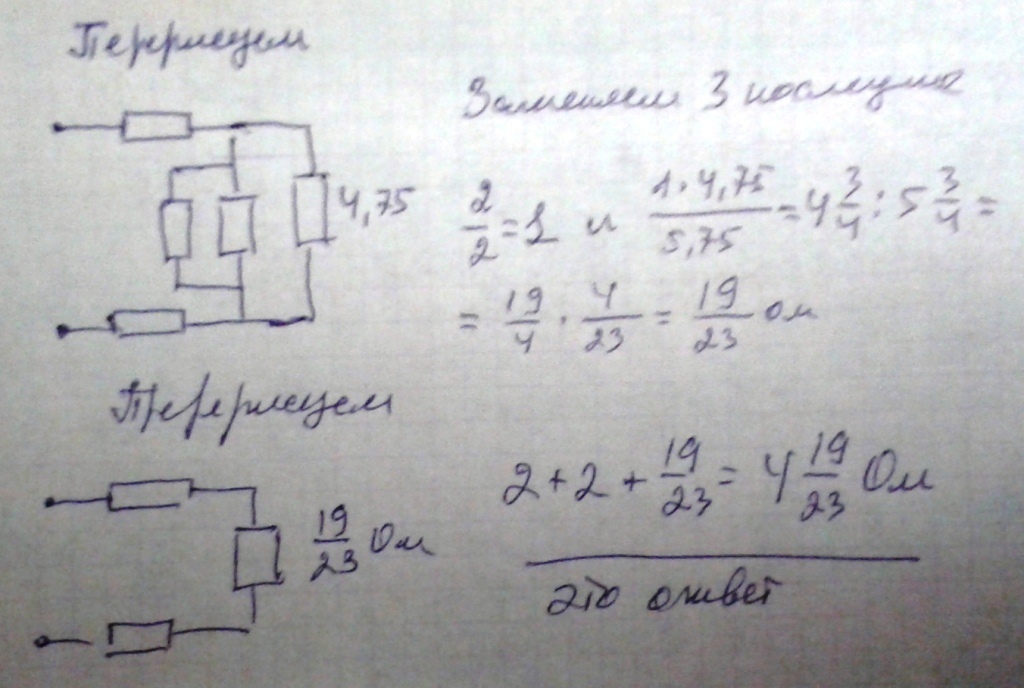 Перерисуем
Заменяем 3
4,75
2/2 = 1 и 1·4,75/5,75 = 4 3/4 : 5 3/4 =
= 19/4 · 4/23 = 19/23 ом
Перерисуем
19/23 Ом
2 + 2 + 19/23 = 4 19/23 Ом
это ответ